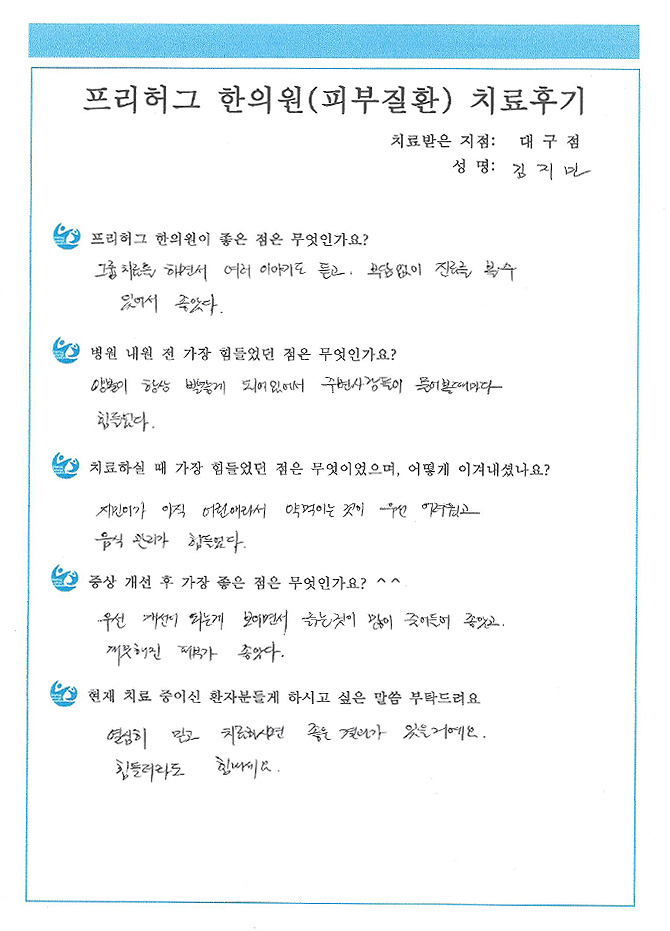 프리허그 한의원(피부질환) 치료후기
치료받은 지점: 대 구 점
성 명: 김 지 민
프리허그 한의원이 좋은 점은 무엇인가요?
그룹치료를 하면서 여러 이야기도 듣고. 부담없이 진료를 볼수
있어서 좋았다.
병원 내원 전 가장 힘들었던 점은 무엇인가요?
양볼이 항상 빨갛게 되어있어서 주변사람들이 물어볼때마다
힘들었다.
치료하실 때 가장 힘들었던 점은 무엇이었으며, 어떻게 이겨내셨나요?
지민이가 아직 어린애라서 약먹이는것이 우선 어려웠고
음식 관리가 힘들었다.
증상 개선 후 가장 좋은 점은 무엇인가요? ^^
우선 개선이 되는게 보이면서 긁는것이 많이 줄어들어 좋았고.
깨끗해진 피부가 좋았다.
현재 치료 중이신 환자분들게 하시고 싶은 말씀 부탁드려요
열심히 믿고 치료하시면 좋은 결과가 있을거예요.
힘들더라도 힘내세요.